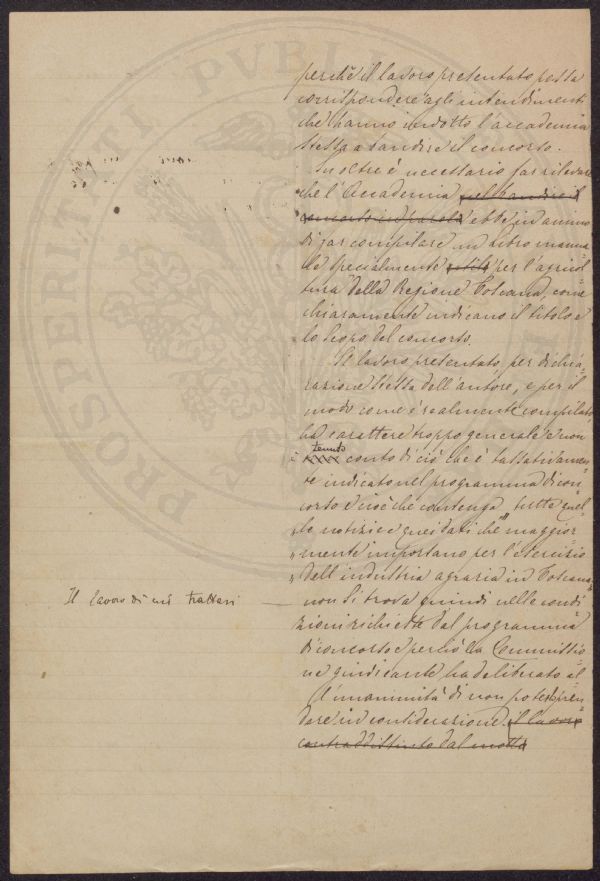 perchè il lavoro presentato possa
corrispondere agli intendimenti
che hanno indotto l'accademia
stessa a bandire il concorso.
Inoltre è necessario far rilevare
che l'Accademia nel bandire il
concorso ebbe in animo
di far compilare un libro manua-
le specialmente utile per l'agricol
tura della Regione Toscana, come
chiaramente indicano il titolo e
lo scopo del concorso.
Il lavoro presentato, per dichia-
razione stessa dell'autore, e per il
modo come è realmente compilato
ha carattere troppo generale e non
tenuto
è conto di ciò che è tassativamen-
te indicato nel programma di con-
corso e cioè che contenga "tutte quel-
"le notizie e quei dati che maggior-
"mente importano per l'esercizio
"dell'industria agraria in Toscana"
Il lavoro di cui trattasi
non si trova quindi nelle condi-
zioni richieste dal programma
di concorso e perciò la Commissio-
ne giudicante ha deliberato al-
l'unanimità di non potersi pren-
dere in considerazione il lavoro
contraddistinto dal motto
PROSPERITATI PVBLI